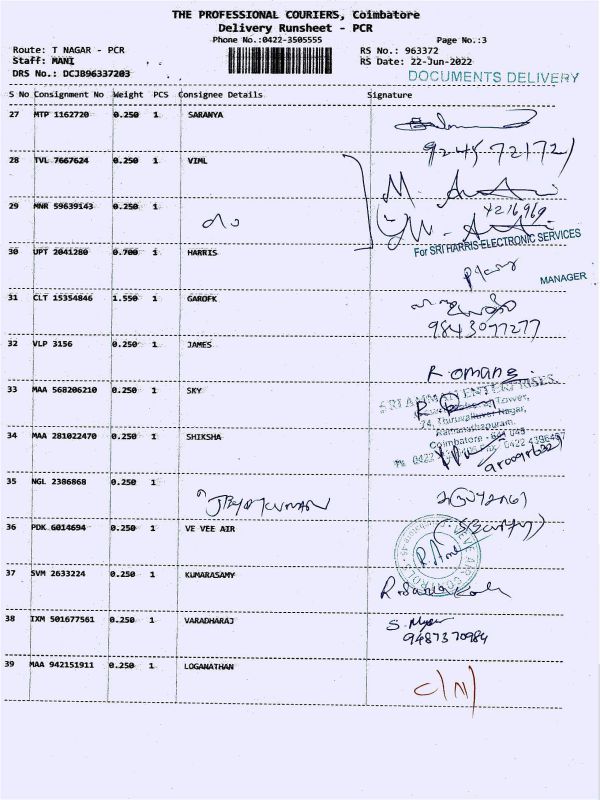 THE PROFESSIONAL COURIERS, Coimbatore
Delivery Runsheet - PCR
Phone No.:0422-3505555
Page No.:3
Route: T NAGAR - PCR
RS No.: 963372
Staff: MANI
RS Date: 22-Jun-2022
DRS No.: DCJB96337203
DOCUMENTS DELIVERY
S No Consignment No Weight PCS Consignee Details Signature
27 MTP 1162720 0.250 1 SARANYA
28 TVL 7667624 0.250 1 VIML
29 MNR 59639143 0.250 1
For SRI HARRIS ELECTRONIC SERVICES
30 UPT 2041280 0.700 1 HARRIS
MANAGER
31 CLT 15354846 1.550 1 GAROFK
9843077277
32 VLP 3156 0.250 1 JAMES
Romans
SRI AMMAN ENTERPRISES,
33 MAA 568206210 0.250 1 SKY
Tower,
24, Thiruvalluvar Nagar,
Ramanathapuram,
34 MAA 281022470 0.250 1 SHIKSHA
Coimbatore - 641 045
35 NGL 2386868 0.250 1
36 PDK 6014694 0.250 1 VE VEE AIR
37 SVM 2633224 0.250 1 KUMARASAMY
38 IXM 501677561 0.250 1 VARADHARAJ
9487370984
39 MAA 942151911 0.250 1 LOGANATHAN
C/N